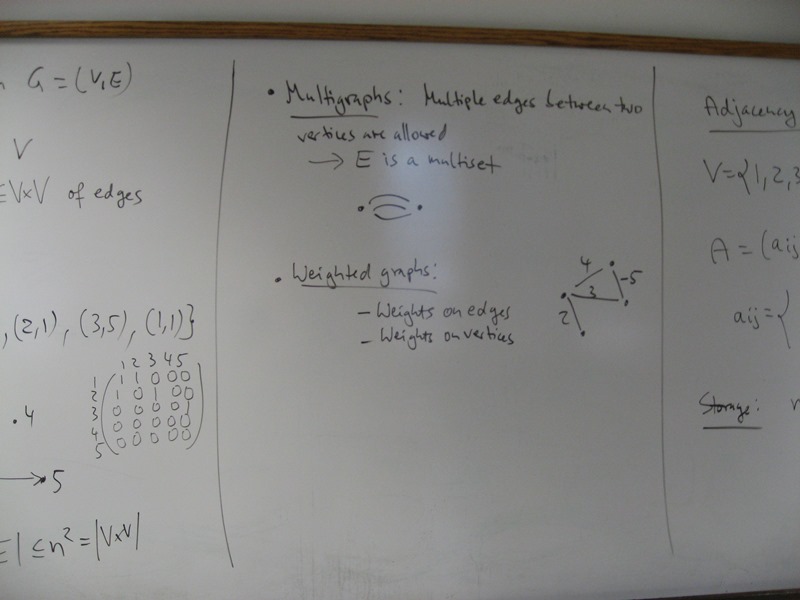 G = (V,E)
V
⊆V×V of edges
, (2,1), (3,5), (1,1)}
1 2 3 4 5
1 1 1 0 0 0
2 1 0 1 0 0
3 0 0 0 0 1
4 0 0 0 0 0
5 0 0 0 0 0
.4
5
E| ≤ n² = |V×V|
• Multigraphs: Multiple edges between two
vertices are allowed
→ E is a multiset
• Weighted graphs:
– Weights on edges
– Weights on vertices
4
-5
3
2
Adjacency
V={1,2,3
A = (aij
aij = {
Storage: